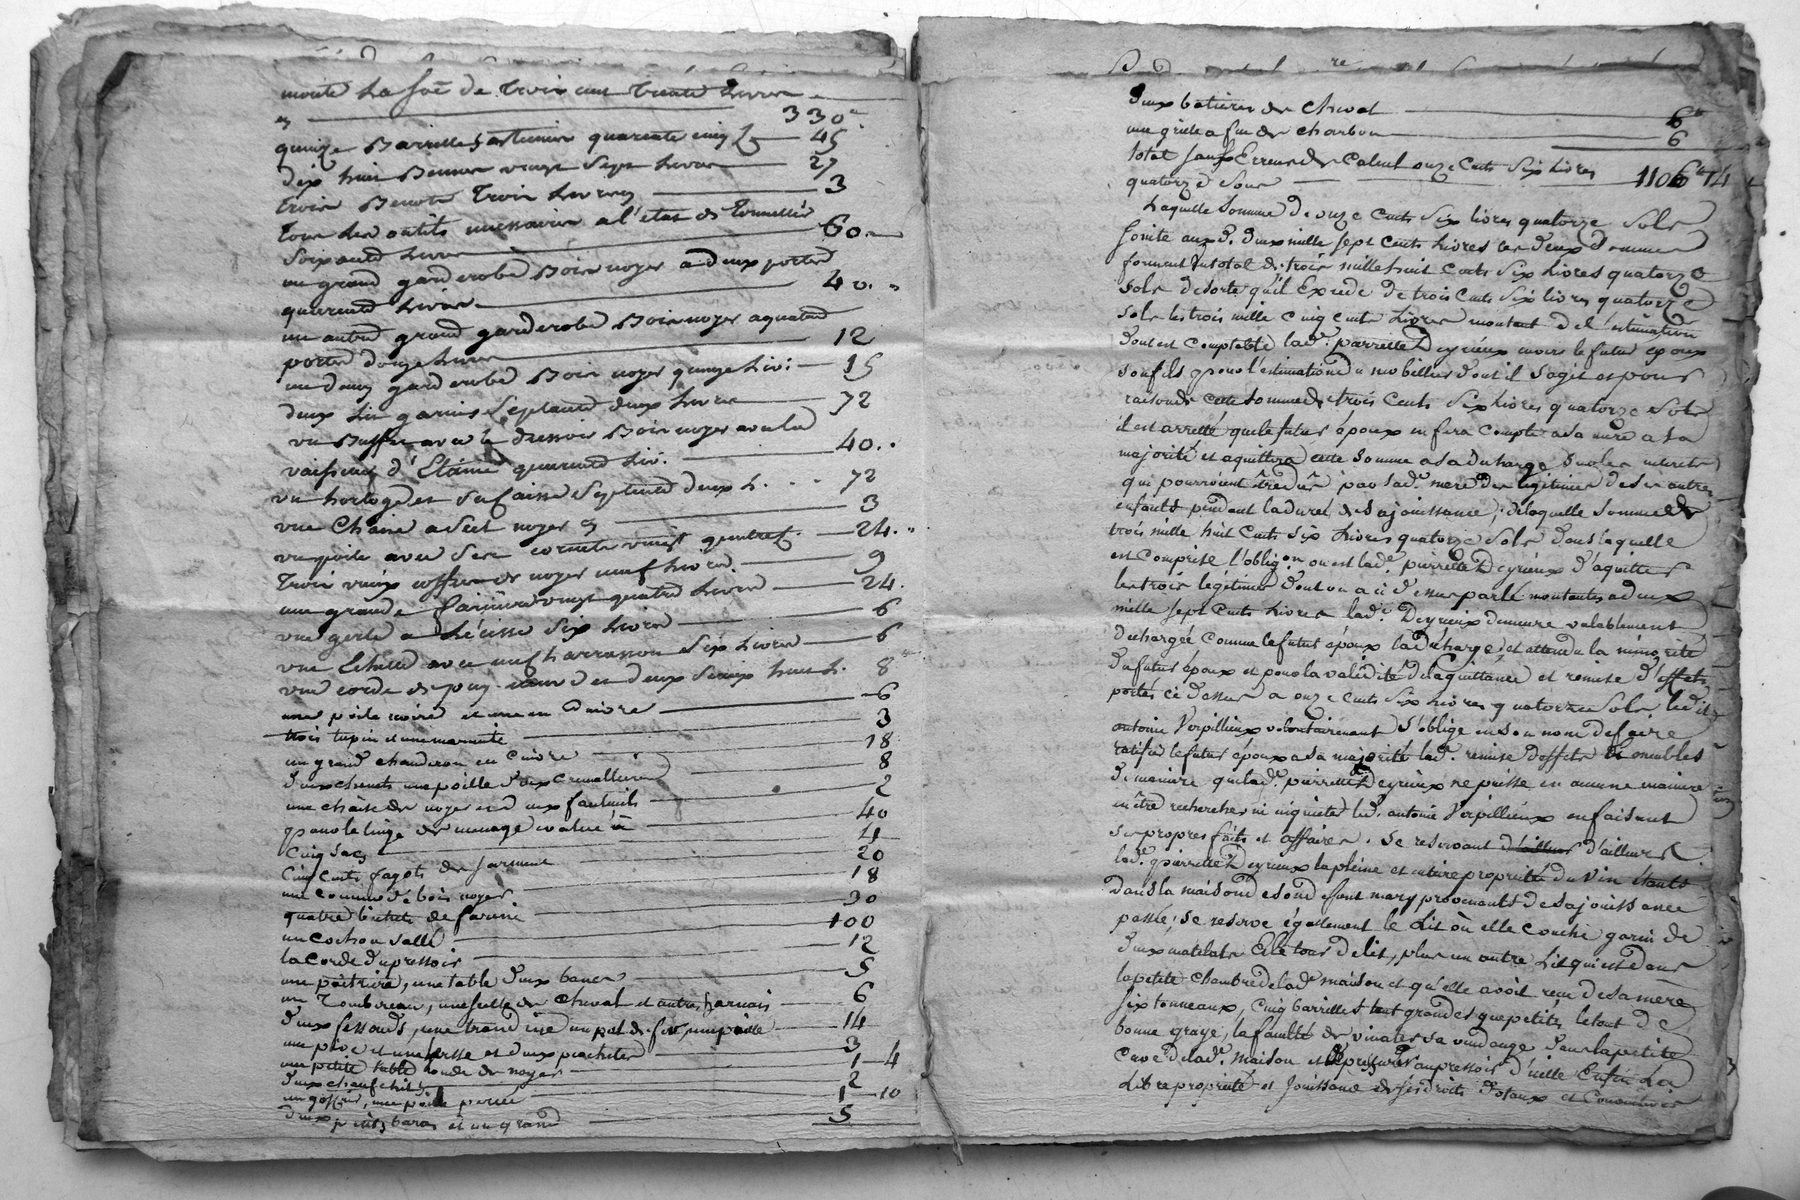 monte la de Trois cent Trente Livres
330
quinze Barrilles quarente cinq L 45
dix huit Bennes vingt Sept Livres 27
trois Benots Trois Livres 3
tous les outils necessaires a l'état de Tonnellier
Soixante Livres 60
un grand garderobe Bois noyer a deux portes
quarente Livres 40
un autre grand garderobe Bois noyer a quatre
portes douze Livres 12
un demy garderobe Bois noyer quinze Liv: 15
deux Lits garnis Septante deux Livres 72
un Buffet avec le dressoir Bois noyer avec la
vaisselle d'Etaime quarente Liv: 40
un horloge et sa Caisse Septente deux L. 72
une Chaise a Sel noyer 3
un poile avec Ses cornets vingt quatre 24
Trois vieux coffres de noyer neuf Livres 9
une grande vingt quatre Livres 24
une gerle a Lécisse Six Livres 6
une Echelle avec neuf harrasson Six Livres 6
une corde de puy et deux Seaux huit L. 8
une poile noire et une en Cuivre 6
trois tupin et une marmite 3
un grand chauderon en Cuivre 18
deux chenets une poille deux Cremallieres 8
une chaise de noyer et deux fauteuils 2
pour le linge de menage evalué à 40
Cinq Sacs 4
Cinq cents fagots de Sarment 20
une commode bois noyer 18
quatre bichets de farine 30
un cochon Sallé 100
la corde du pressoir 12
une paitriere, une table deux bancs 5
un Tombereau, une selle de Cheval et autres harnais 6
deux fessouds, une trandine un pal de fer, une poille 14
une pive et une et deux piochettes 3
une petite table ronde de noyer 1 4
deux chaufelits 2
un goffre, une poile percée 1 10
deux petits baras et un grand 5
deux batieres de Cheval 6
une grille a feu de Charbon 6
total Sauf Erreur de Calcul onze Cents Six Livres
quatorze Sous 1106 14
Laquelle Somme de onze Cents Six livres quatorze Sols
Jointe aux d. deux mille Sept Cents Livres ces deux Sommes
forment un total de trois mille huit Cents Six Livres quatorze
Sols de sorte qu'il Exede de trois Cents Six livres quatorze
Sols les trois mille Cinq Cents Livres montant de l'estimation
dont est Comptable lad. pierrette Deyrieux envers le futur epoux
Son fils pour l'estimation du mobillier dont il S'agit et pour
raison de cette Somme de trois Cents Six Livres quatorze Sols
il est arrétté que le futur époux en fera Compte a sa mere a sa
majorité et aquittera cette Somme a sa décharge Sur les interets
qui pourroient être dus par lad. mere des légitimes de ses autres
enfants pendant la durée de Sa jouissance, de laquelle Somme de
trois mille huit Cents Six Livres quatorze Sols dans laquelle
est Comprise l'oblig.on ou est lad. pierrette Deyrieux d'aquitter
les trois légitimes dont on a ci dessus parlé montantes a deux
mille Sept Cents Livres lad. Deyrieux demeure valablement
déchargée comme le futur époux la décharge, et attendu la minorité
du futur époux et pour la validité de la quittance et remise d'effets
portés ci dessus a onze Cents Six Livres quatorze Sols ledit
antoine Verpillieux volontairement S'oblige en Son nom de faire
ratifier le futur époux a sa majorité lad. remise d'effets et meubles
de maniere que lad. pierrette Deyrieux ne puisse en aucune maniere
en être recherchée ni inquietée led. antoine Verpillieux en faisant
Ses propres faits et affaires. Se reservant d'ailleurs d'ailleurs
lad. pierrette Deyrieux la pleine et entiere propriété du Vin étants
dans la maison de Son d. deffunt mary provenants de Sa jouissance
passée, Se reserve également le Lit où elle Couche garni de
deux matelats Et le tour de lit, plus un autre Lit qui est dans
la petite Chambre de lad. maison et qu'elle avoit reçu de Sa mère
Six tonneaux, Cinq barrilles tant grandes que petites le tout de
bonne graye, la faculté de vinater Sa vendange dans la petite
Cave de lad. maison et de pressurer au pressoir d'icelle Enfin La
Libre propriété et Jouissance de Ses droits Dotaux et Conventuels